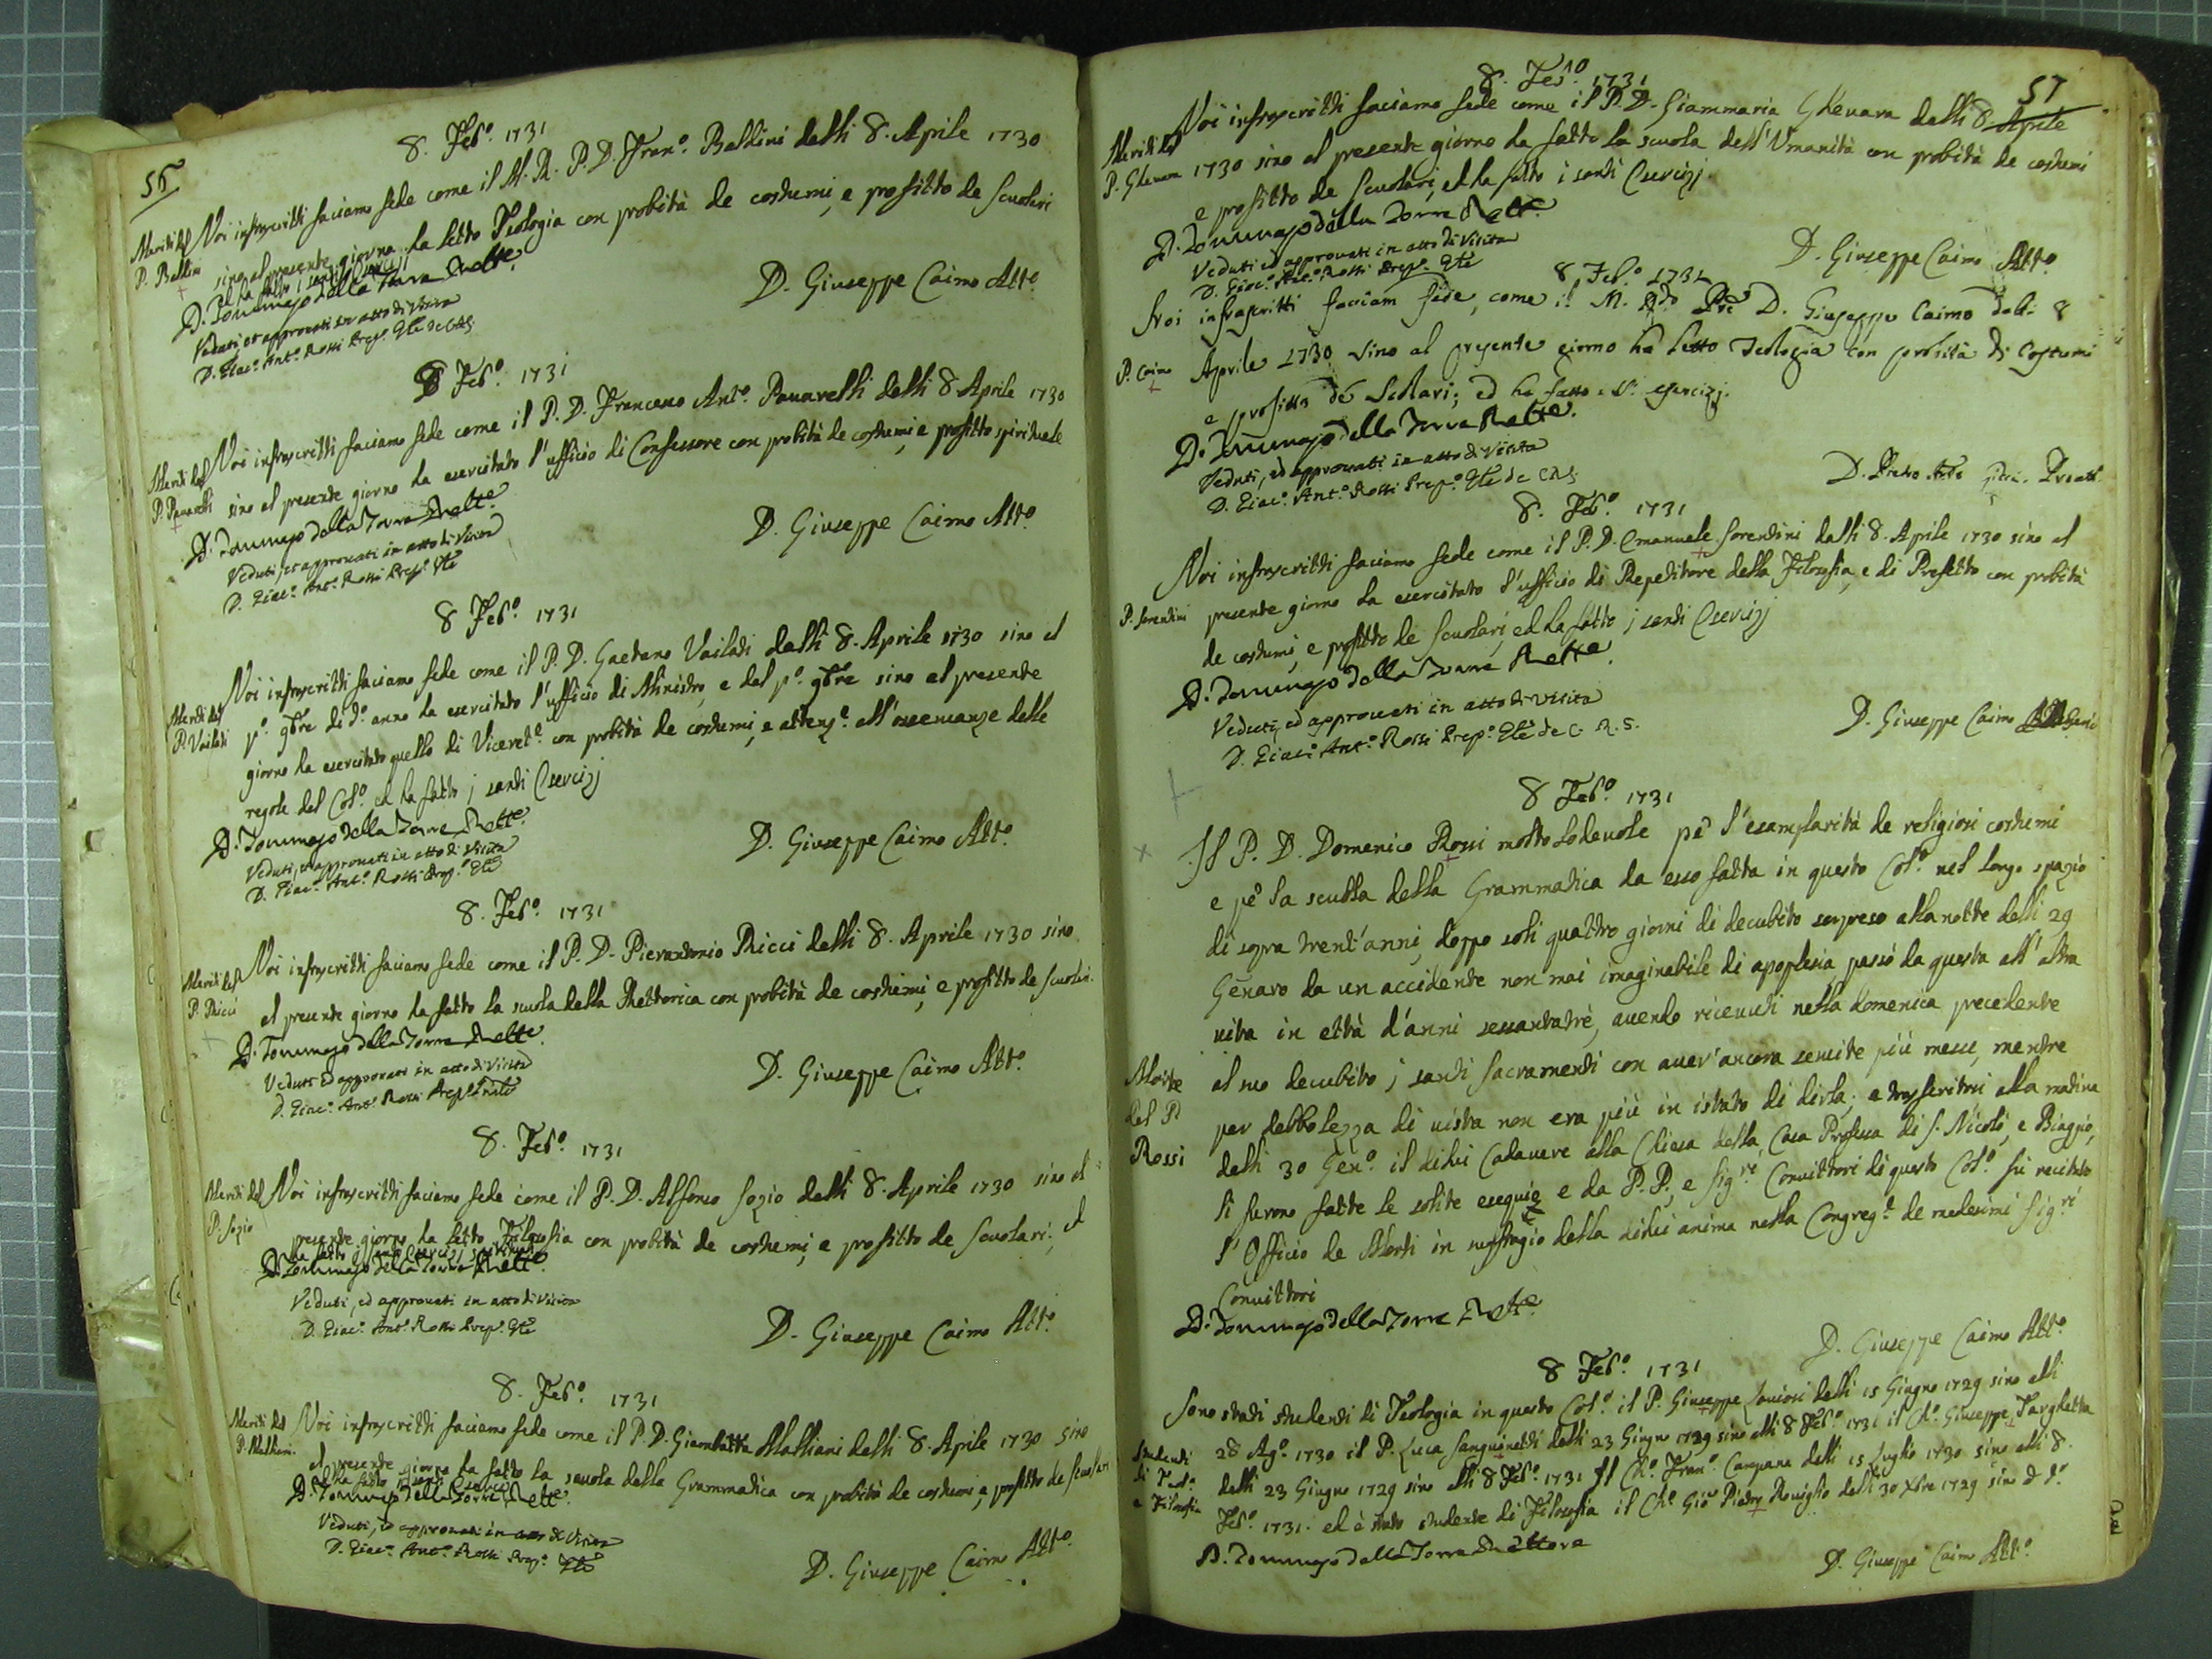 56
8. Feb.º 1731
Meriti del P. Bellini
Noi infrascritti facciamo fede come il M. R. P. D. Fran.º Bellini delli 8. Aprile 1730
sino al presente giorno ha letto Teologia con probità de costumi, e profitto de scuolari
ed ha fatto i santi Esercizj
D. Tommaso della Torre Rett.e
Veduti et approvati in atto di Visita
D. Giac.º Ant.º Rossi Prep.º Gñle de CRS.
D. Giuseppe Caimo Att.º
8 Feb.º 1731
Meriti del P. Panarelli
Noi infrascritti facciamo fede come il P. D. Francesco Ant.º Panarelli delli 8 Aprile 1730
sino al presente giorno ha esercitato l'ufficio di Confessore con probità de costumi, e profitto spirituale
D. Tommaso della Torre Rett.e
Veduti, et approvati in atto di Visita
D. Giac.º Ant.º Rossi Prep.º Gñle
D. Giuseppe Caimo Att.º
8 Feb.º 1731
Meriti del P. Vailati
Noi infrascritti facciamo fede come il P. D. Gaetano Vailati delli 8. Aprile 1730 sino al
p.º 9bre di d.º anno ha esercitato l'ufficio di Ministro, e dal p.º 9bre sino al presente
giorno ha esercitato quello di Viceret.e con probità de costumi, e attenz.e all'osservanze delle
regole del Col.º ed ha fatto i santi Esercizj
D. Tommaso della Torre Rett.e
Veduti, et approvati in atto di Visita
D. Giac.º Ant.º Rossi Prep.º Gñle
D. Giuseppe Caimo Att.º
8. Feb.º 1731
Meriti del P. Ricci
Noi infrascritti facciamo fede come il P. D. Pierantonio Ricci delli 8. Aprile 1730 sino
al presente giorno ha fatto la scuola della Rettorica con probità de costumi, e profitto de scuolari.
D. Tommaso della Torre Rett.e
Veduti ed approvati in atto di Visita
D. Giac.º Ant.º Rossi Prep.º Gñale
D. Giuseppe Caimo Att.º
8. Feb.º 1731
Meriti del P. Sozio
Noi infrascritti facciamo fede come il P. D. Alfonso Sozio delli 8. Aprile 1730 sino al
presente giorno ha letto Filosofia con probità de costumi, e profitto de scuolari; ed
ha fatto i santi Esercizj spirituali
D. Tommaso della Torre Rett.e
Veduti, ed approvati in atto di Visita
D. Giac.º Ant.º Rossi Prep.º Gñle
D. Giuseppe Caimo Att.º
8. Feb.º 1731
Meriti del P. Mattiani
Noi infrascritti facciamo fede come il P. D. Giambatta Mattiani delli 8. Aprile 1730 sino
al presente giorno ha fatto la scuola della Grammatica con probità de costumi e, profitto de scuolari
ed ha fatto i santi Esercizj
D. Tommaso della Torre Rett.e
Veduti, ed approvati in atto di Visita
D. Giac.º Ant.º Rossi Prep.º Gñle
D. Giuseppe Caimo Att.º
57
8. Feb.º 1731
Meriti del P. Ghevara
Noi infrascritti facciamo fede come il P. D. Giammaria Ghevara delli 8. Aprile
1730 sino al presente giorno ha fatto la scuola dell'Umanità con probità de costumi
e profitto de scuolari, ed ha fatto i santi Esercizj.
D. Tommaso della Torre Rett.e
Veduti ed approvati in atto di Visita
D. Giac.º Ant.º Rossi Prep.º Gñle
D. Giuseppe Caimo Att.º
8 Feb.º 1731
P. Caimo
Noi infrascritti facciam fede, come il M. R.do Pre D. Giuseppe Caimo dalli 8
Aprile 1730 sino al presente giorno ha letto Teologia con probità di costumi
e profitto de' Scolari; ed ha fatto i S.i esercizj.
D. Tommaso della Torre Rett.e
Veduti, ed approvati in atto di Visita
D. Giac.º Ant.º Rossi Prep.º Gñle de CRS
D. Pietro Ricci
8. Feb.º 1731
P. Sorentini
Noi infrascritti facciamo fede come il P. D. Emanuele Sorentini dalli 8. Aprile 1730 sino al
presente giorno ha esercitato l'ufficio di Repetitore della Filosofia, e di Prefetto con probità
de costumi, e profitto de scuolari, ed ha fatto i santi Esercizj
D. Tommaso della Torre Rett.e
Veduti, ed approvati in atto di Visita
D. Giac.º Ant.º Rossi Prep.º Gñle de C. R. S.
D. Giuseppe Caimo
8 Feb.º 1731
Il P. D. Domenico Rossi molto lodevole pe l'esamplarità de religiosi costumi
e pe la scuola della Grammatica da esso fatta in questo Col.º nel longo spazio
di sopra trent'anni, doppo soli quattro giorni di decubito sorpreso alla notte delli 29
Genaro da un accidente non mai imaginabile di apoplesia passò da questa all'altra
vita in ettà d'anni sessantatré, avendo ricevuti nella domenica precedente
Morte del P. Rossi
al suo decubito i santi Sacramenti con aver'ancora sentite più messe, mentre
per debbolezza di vista non era più in istato di dirla; e trasferitosi alla matina
delli 30 Gen.º il dilui Cadavere alla Chiesa della Casa Professa di S. Nicolò, e Biaggio,
li furono fatte le solite esequie e da P. P., e Sig.ri Convittori di questo Col.º fu recitato
l'Officio de Morti in suffragio della dilui anima nella Congreg.e de medesimi Sig.ri
Convittori
D. Tommaso della Torre Rett.e
D. Giuseppe Caimo Att.º
8 Feb.º 1731
Studenti di Teol.a e Filosofia
Sono stati studenti di Teologia in questo Col.º il P. Giuseppe Laviosi dalli 15 Giugno 1729 sino alli
28 Ag.º 1730 il P. Luca Sanguinetti dalli 23 Giugno 1729 sino alli 8 Feb.º 1731 il Ch.º Giuseppe Targhetta
dalli 23 Giugno 1729 sino alli 8 Feb.º 1731 Il Ch.º Fran.º Campana dalli 15 Luglio 1730 sino alli 8.
Feb.º 1731. ed è stato studente di Filosofia il Ch.º Gio Pietro Roviglio dalli 30 Xbre 1729 sino d d.º
D. Tommaso della Torre Rettore
D. Giuseppe Caimo Att.º